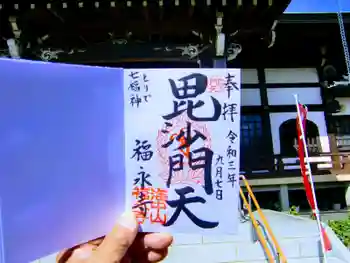 奉拝
令和二年
九月七日
毘沙門天
福永寺
とりで
七福神